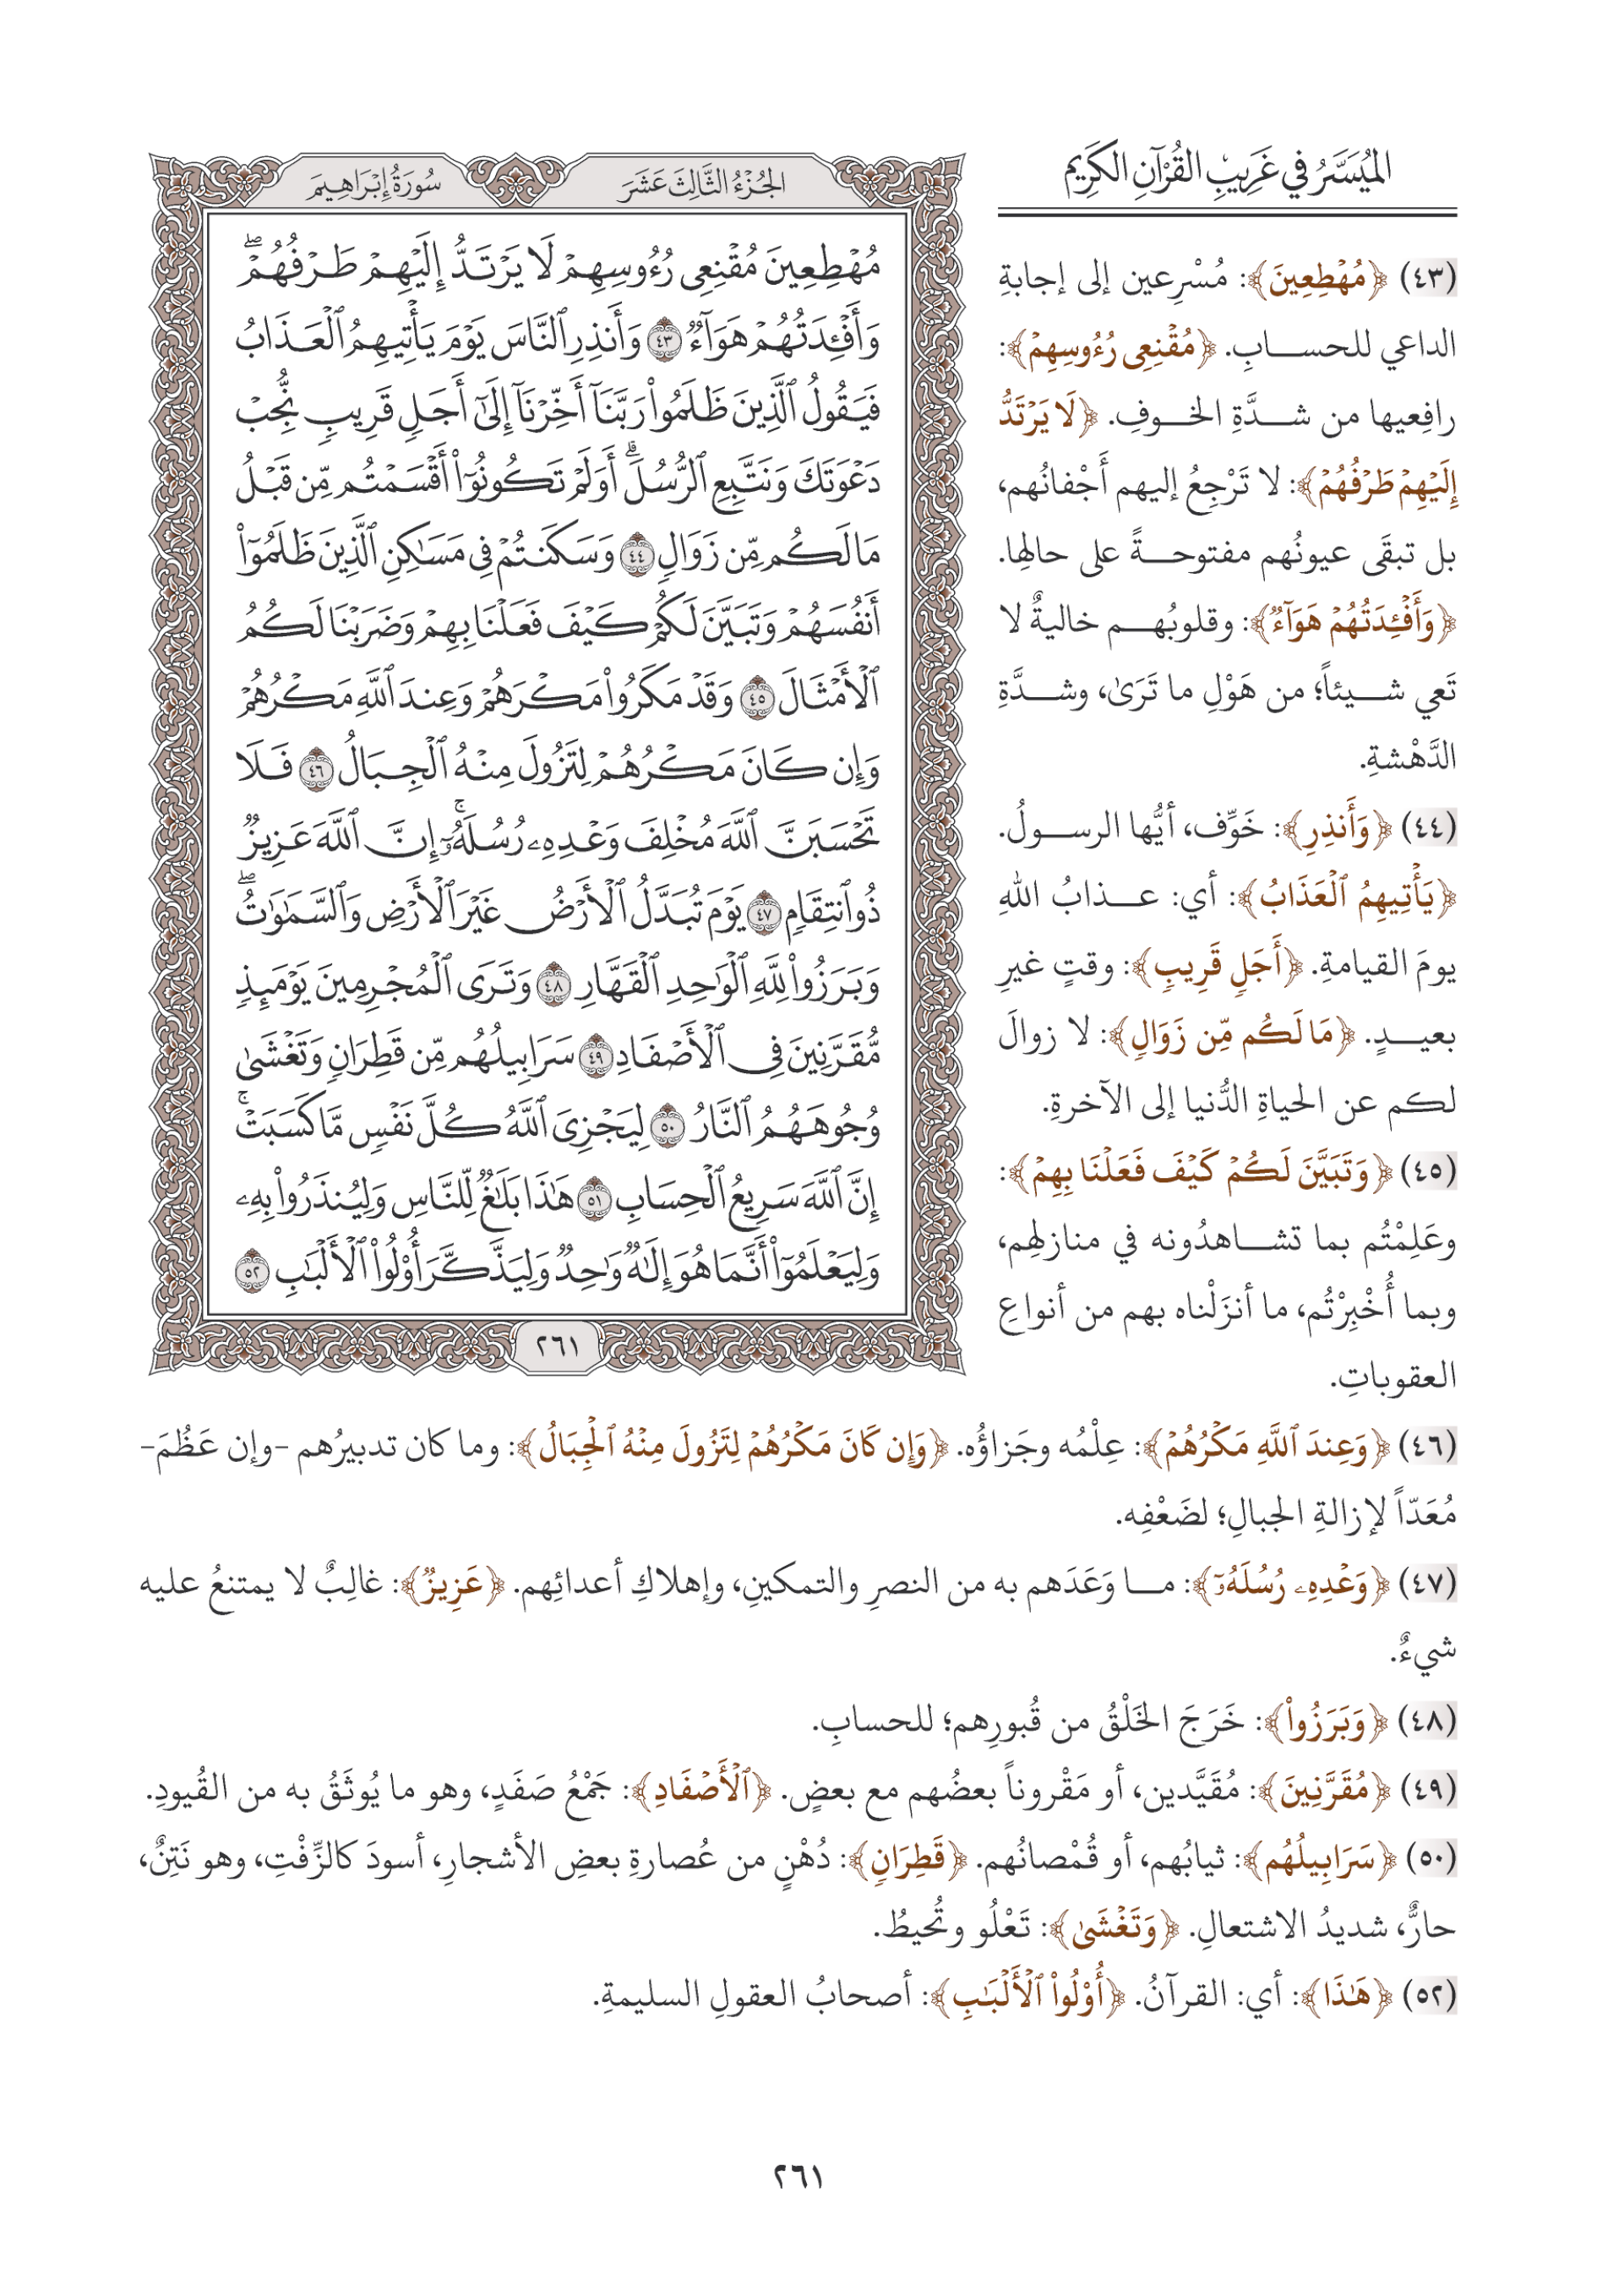 الميُسَّرُ في غَرِيبِ القُرْآنِ الكَرِيم
الجُزْءُ الثَّالِثَ عَشَرَ
سُورَةُ إِبْرَاهِيمَ
مُهْطِعِينَ مُقْنِعِى رُءُوسِهِمْ لَا يَرْتَدُّ إِلَيْهِمْ طَرْفُهُمْۖ
وَأَفْـِٔدَتُهُمْ هَوَآءٌ ٤٣ وَأَنذِرِ ٱلنَّاسَ يَوْمَ يَأْتِيهِمُ ٱلْعَذَابُ
فَيَقُولُ ٱلَّذِينَ ظَلَمُوا۟ رَبَّنَآ أَخِّرْنَآ إِلَىٰٓ أَجَلٍ قَرِيبٍ نُّجِبْ
دَعْوَتَكَ وَنَتَّبِعِ ٱلرُّسُلَۗ أَوَلَمْ تَكُونُوٓا۟ أَقْسَمْتُم مِّن قَبْلُ
مَا لَكُم مِّن زَوَالٍ ٤٤ وَسَكَنتُمْ فِى مَسَـٰكِنِ ٱلَّذِينَ ظَلَمُوٓا۟
أَنفُسَهُمْ وَتَبَيَّنَ لَكُمْ كَيْفَ فَعَلْنَا بِهِمْ وَضَرَبْنَا لَكُمُ
ٱلْأَمْثَالَ ٤٥ وَقَدْ مَكَرُوا۟ مَكْرَهُمْ وَعِندَ ٱللَّهِ مَكْرُهُمْ
وَإِن كَانَ مَكْرُهُمْ لِتَزُولَ مِنْهُ ٱلْجِبَالُ ٤٦ فَلَا
تَحْسَبَنَّ ٱللَّهَ مُخْلِفَ وَعْدِهِۦ رُسُلَهُۥٓۚ إِنَّ ٱللَّهَ عَزِيزٌ
ذُو ٱنتِقَامٍ ٤٧ يَوْمَ تُبَدَّلُ ٱلْأَرْضُ غَيْرَ ٱلْأَرْضِ وَٱلسَّمَـٰوَٰتُۖ
وَبَرَزُوا۟ لِلَّهِ ٱلْوَٰحِدِ ٱلْقَهَّارِ ٤٨ وَتَرَى ٱلْمُجْرِمِينَ يَوْمَئِذٍ
مُّقَرَّنِينَ فِى ٱلْأَصْفَادِ ٤٩ سَرَابِيلُهُم مِّن قَطِرَانٍ وَتَغْشَىٰ
وُجُوهَهُمُ ٱلنَّارُ ٥٠ لِيَجْزِىَ ٱللَّهُ كُلَّ نَفْسٍ مَّا كَسَبَتْۚ
إِنَّ ٱللَّهَ سَرِيعُ ٱلْحِسَابِ ٥١ هَـٰذَا بَلَـٰغٌ لِّلنَّاسِ وَلِيُنذَرُوا۟ بِهِۦ
وَلِيَعْلَمُوٓا۟ أَنَّمَا هُوَ إِلَـٰهٌ وَٰحِدٌ وَلِيَذَّكَّرَ أُو۟لُوا۟ ٱلْأَلْبَـٰبِ ٥٢
٢٦١
(٤٣) ﴿مُهْطِعِينَ﴾: مُسْرِعين إلى إجابةِ
الداعي للحسابِ. ﴿مُقْنِعِى رُءُوسِهِمْ﴾:
رافِعيها من شدَّةِ الخوفِ. ﴿لَا يَرْتَدُّ
إِلَيْهِمْ طَرْفُهُمْ﴾: لا تَرْجِعُ إليهم أَجْفانُهم،
بل تبقَى عيونُهم مفتوحةً على حالِها.
﴿وَأَفْـِٔدَتُهُمْ هَوَآءٌ﴾: وقلوبُهم خاليةٌ لا
تَعي شيئاً؛ من هَوْلِ ما تَرَىٰ، وشدَّةِ
الدَّهْشةِ.
(٤٤) ﴿وَأَنذِرِ﴾: خَوِّف، أيُّها الرسولُ.
﴿يَأْتِيهِمُ ٱلْعَذَابُ﴾: أي: عذابُ اللهِ
يومَ القيامةِ. ﴿أَجَلٍ قَرِيبٍ﴾: وقتٍ غيرِ
بعيدٍ. ﴿مَا لَكُم مِّن زَوَالٍ﴾: لا زوالَ
لكم عن الحياةِ الدُّنيا إلى الآخرةِ.
(٤٥) ﴿وَتَبَيَّنَ لَكُمْ كَيْفَ فَعَلْنَا بِهِمْ﴾:
وعَلِمْتُم بما تشاهدُونه في منازلِهِم،
وبما أُخْبِرْتُم، ما أنزَلْناه بهم من أنواعِ
العقوباتِ.
(٤٦) ﴿وَعِندَ ٱللَّهِ مَكْرُهُمْ﴾: عِلْمُه وجَزاؤُه. ﴿وَإِن كَانَ مَكْرُهُمْ لِتَزُولَ مِنْهُ ٱلْجِبَالُ﴾: وما كان تدبيرُهم -وإن عَظُمَ-
مُعَدّاً لإزالةِ الجبالِ؛ لضَعْفِه.
(٤٧) ﴿وَعْدِهِۦ رُسُلَهُۥٓ﴾: ما وَعَدَهم به من النصرِ والتمكينِ، وإهلاكِ أعدائِهم. ﴿عَزِيزٌ﴾: غالِبٌ لا يمتنعُ عليه
شيءٌ.
(٤٨) ﴿وَبَرَزُوا۟﴾: خَرَجَ الخَلْقُ من قُبورِهم؛ للحسابِ.
(٤٩) ﴿مُقَرَّنِينَ﴾: مُقَيَّدين، أو مَقْروناً بعضُهم مع بعضٍ. ﴿ٱلْأَصْفَادِ﴾: جَمْعُ صَفَدٍ، وهو ما يُوثَقُ به من القُيودِ.
(٥٠) ﴿سَرَابِيلُهُم﴾: ثيابُهم، أو قُمْصانُهم. ﴿قَطِرَانٍ﴾: دُهْنٍ من عُصارةِ بعضِ الأشجارِ، أسودَ كالزِّفْتِ، وهو نَتِنٌ،
حارٌّ، شديدُ الاشتعالِ. ﴿وَتَغْشَىٰ﴾: تَعْلُو وتُحيطُ.
(٥٢) ﴿هَـٰذَا﴾: أي: القرآنُ. ﴿أُو۟لُوا۟ ٱلْأَلْبَـٰبِ﴾: أصحابُ العقولِ السليمةِ.
٢٦١